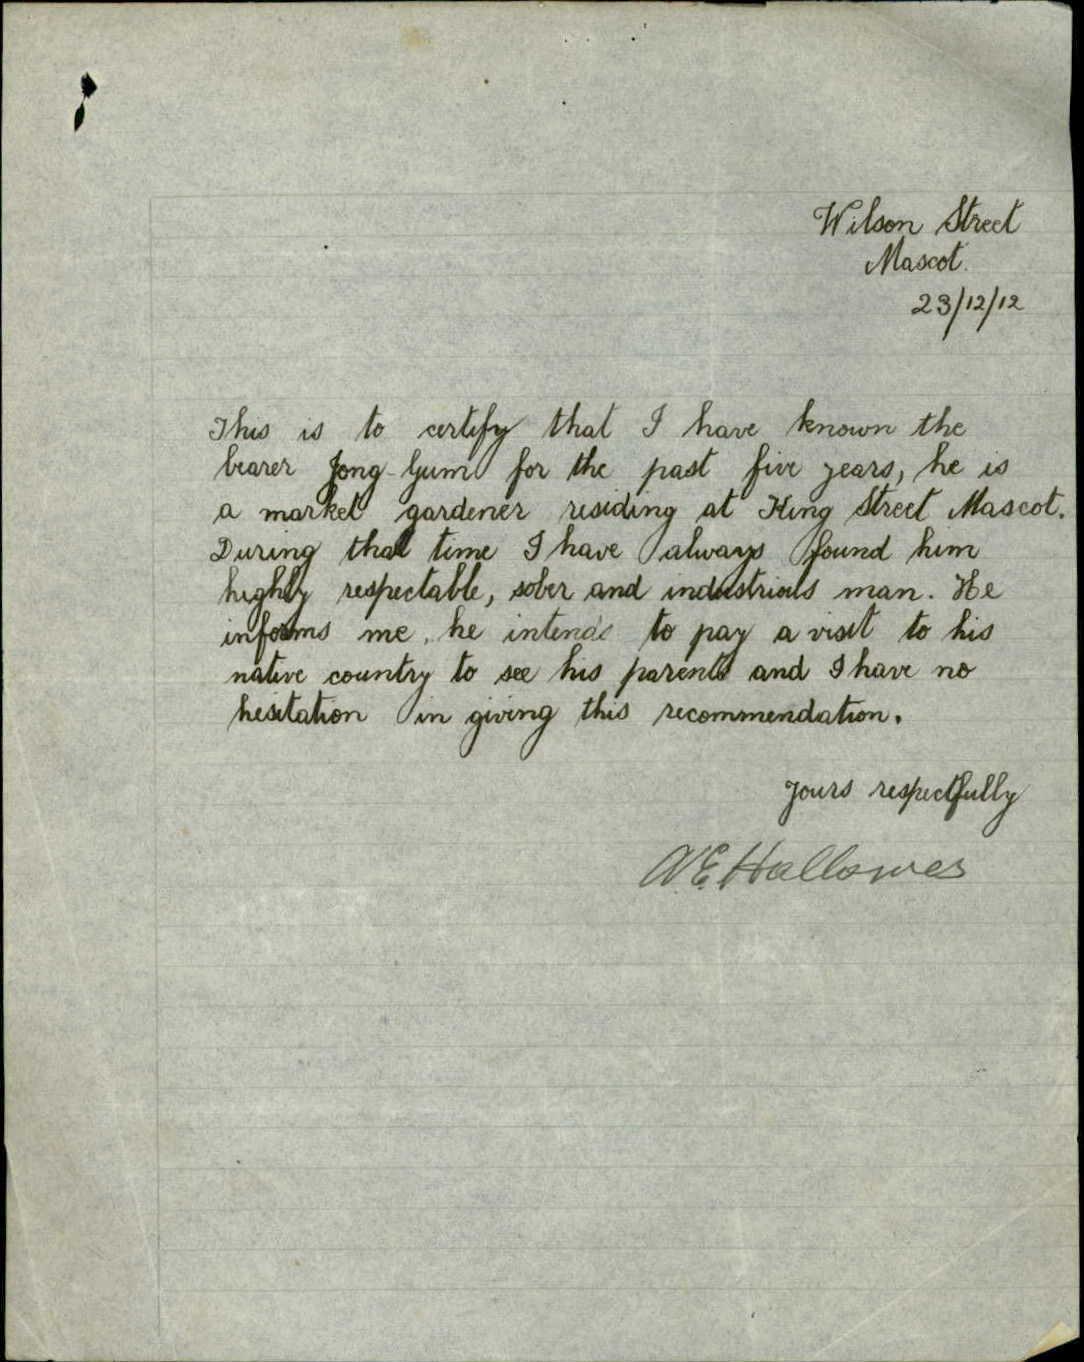 Wilson Street
Mascot.
23/12/12
This is to certify that I have known the
bearer Jong Gum for the past five years, he is
a market gardener residing at King Street Mascot.
During that time I have always found him
highly respectable, sober and industrious man. He
informs me, he intends to pay a visit to his
native country to see his parents and I have no
hesitation in giving this recommendation.
Yours respectfully
A.E. Hallowes